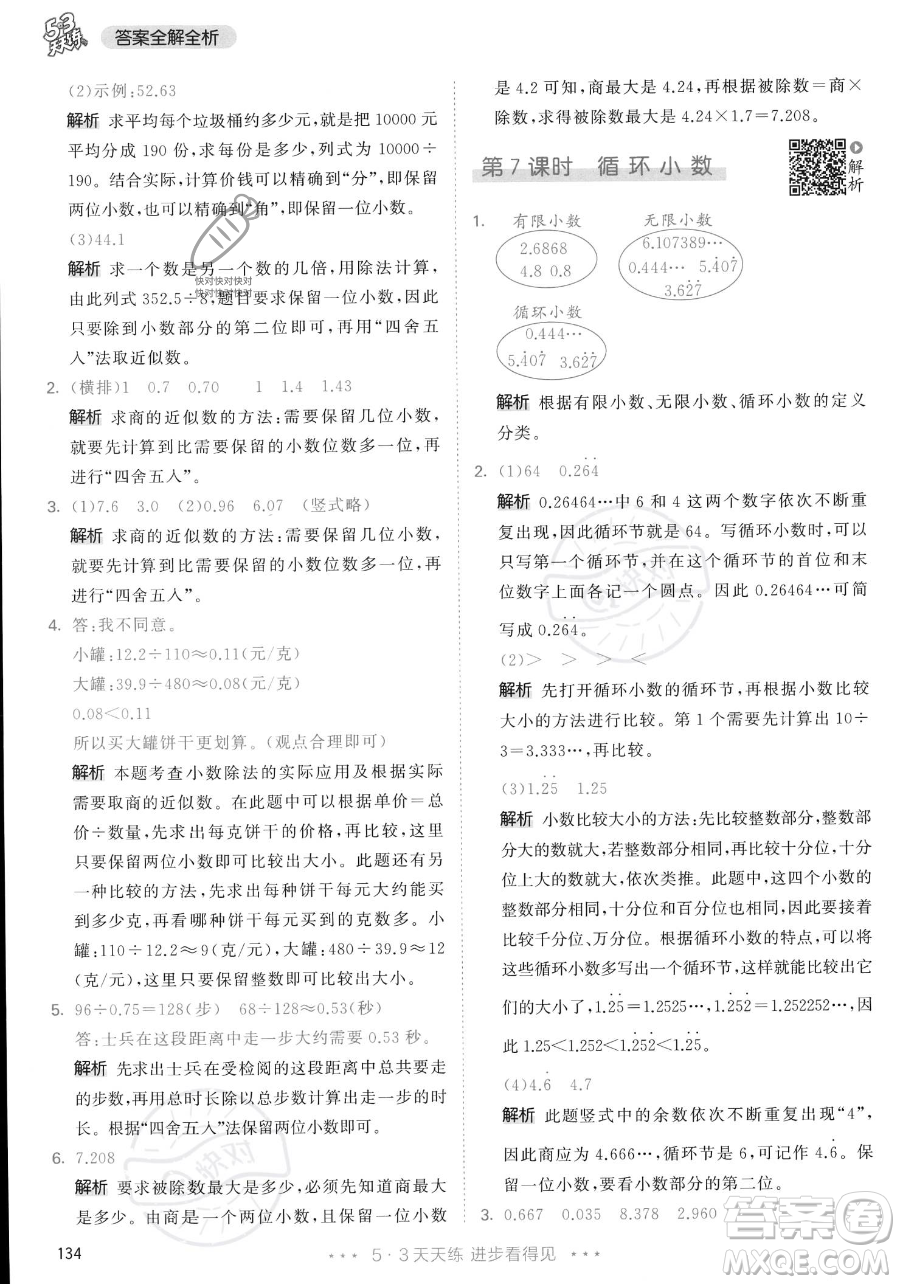 5·3
天天练
答案全解全析
(2)示例:52.63
解析 求平均每个垃圾桶约多少元,就是把 10000 元
平均分成 190 份,求每份是多少元,列式为 10000÷
190。结合实际,计算价钱可以精确到“分”,即保留
两位小数,也可以精确到“角”,即保留一位小数。
(3)44.1
解析 求一个数是另一个数的几倍,用除法计算,
由此列式 352.5÷8,题目要求保留一位小数,因此
只要除到小数部分的第二位即可,再用“四舍五
入”法取近似数。
2. (横排)1 0.7 0.70 1 1.4 1.43
解析 求商的近似数的方法:需要保留几位小数,
就要先计算到比需要保留的小数位数多一位,再
进行“四舍五入”。
3. (1)7.6 3.0 (2)0.96 6.07 (竖式略)
解析 求商的近似数的方法:需要保留几位小数,
就要先计算到比需要保留的小数位数多一位,再
进行“四舍五入”。
4. 答:我不同意。
小罐:12.2÷110≈0.11(元/克)
大罐:39.9÷480≈0.08(元/克)
0.08<0.11
所以买大罐饼干更划算。(观点合理即可)
解析 本题考查小数除法的实际应用及根据实际
需要取商的近似数。在此题中可以根据单价=总
价÷数量,先求出每克饼干的价格,再比较,这里
只要保留两位小数即可比较出大小。本题还有另
一种比较的方法,先求出每种饼干每元大约能买
到多少克,再看哪种饼干每元买到的克数多。小
罐:110÷12.2≈9(克/元),大罐:480÷39.9≈12
(克/元),此题中保留整数即可比较出大小。
5. 96÷0.75=128(步) 68÷128≈0.53(秒)
答:士兵在这段距离中走一步大约需要 0.53 秒。
解析 先求出士兵在受检阅的这段距离中走正步
的步数,再用总时长除以总步数得到走一步的时
长。根据“四舍五入”法保留两位小数即可。
6. 7.208
解析 要求被除数最大是多少,必须先知道商最大
是多少。由商是一个两位小数,保留一位小数后
是 4.2 可知,商最大是 4.24,再根据被除数=商×
除数,求得被除数最大是 4.24×1.7=7.208。
第 7 课时 循环小数
解析
1. 有限小数 无限小数
2.6868 6.107389…
4.8 0.8 0.444… 5.4̇07̇
3.62̇7̇
循环小数
0.444…
5.4̇07̇ 3.62̇7̇
解析 根据有限小数、无限小数、循环小数的定义
分类。
2. (1)64 0.26̇4̇
解析 0.26464…中 6 和 4 这两个数字依次不断重
复出现,因此循环节就是 64。写循环小数时,可以
只写第一个循环节,并在这个循环节的首位和末
位数字上面各记一个圆点。因此 0.26464…可简
写成 0.26̇4̇。
(2)> > > >
解析 先打开循环小数的循环节,再根据小数比较
大小的方法进行比较。第 1 个需要先计算出 10÷
3=3.333…,再比较。
(3)1.2̇5̇ 1.25
解析 小数比较大小的方法:先比较整数部分,整数部
分大的数就大,整数部分相同,再比较十分位,十分
位上大的数就大,依次类推。此题中,这四个小数的
整数部分相同,十分位和百分位也相同,因此只要
比较千分位、万分位。根据循环小数的特点,可以将
这些循环小数多写一个循环节,这样就能比较出它
们的大小。1.2̇5̇=1.2525…,1.2̇52̇=1.252252…,因
此 1.25<1.252<1.2̇52̇<1.2̇5̇。
(4)4.6̇ 4.7
解析 此题竖式中的余数依次不断重复出现“4”,
因此商应为 4.666…,循环节是 6,可写作 4.6̇。保
留一位小数,要看小数部分的第二位。
3. 0.667 0.035 8.378 2.960
134
5·3 天天练 进步看得见
快对快对快对
快对快对快对
快对
快对
答案圈